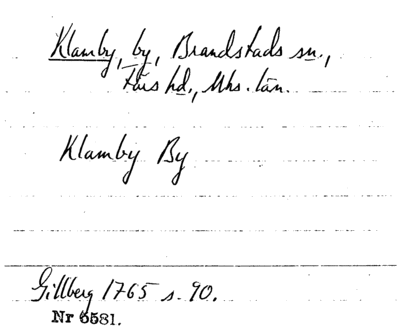 Klamby, by, Brandstads sn.,
Färs hd., Mhs. län.
Klamby By
Gillberg 1765 s. 90.
Nr 6581.